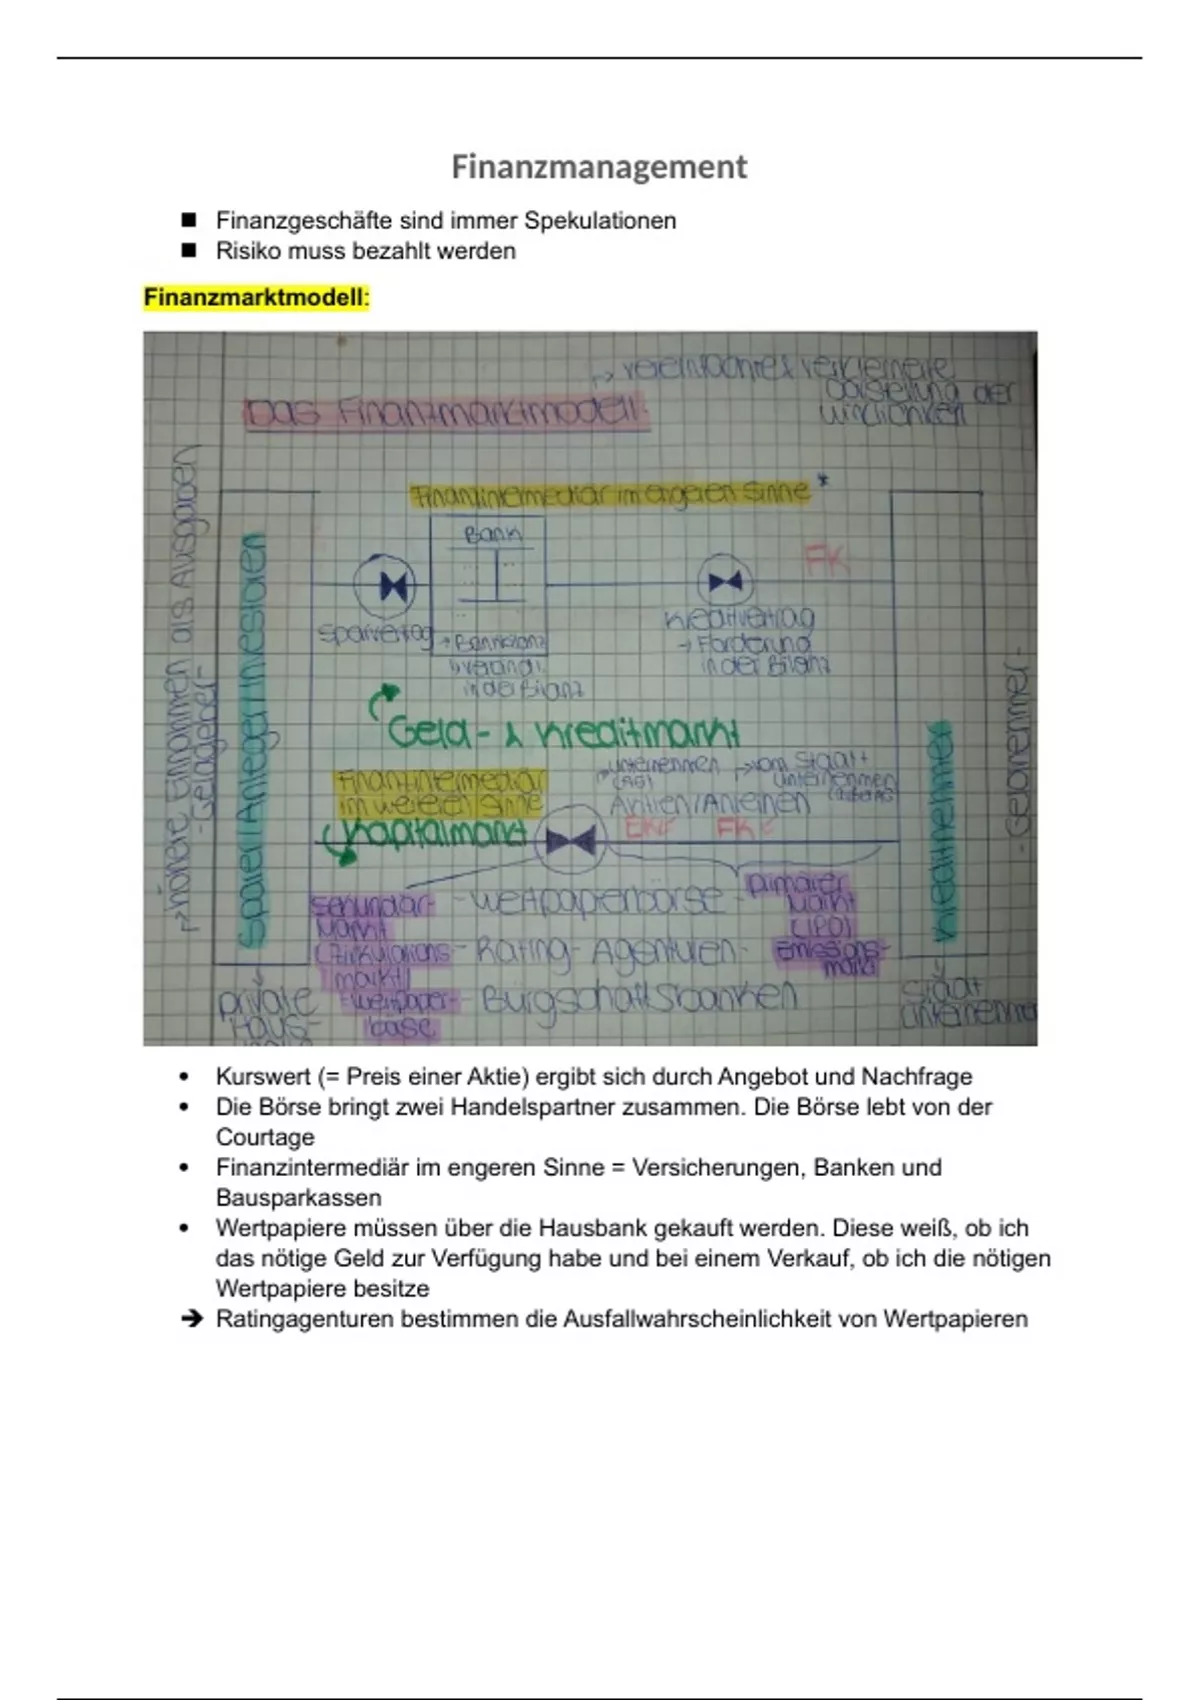 Finanzmanagement
Finanzgeschäfte sind immer Spekulationen
Risiko muss bezahlt werden
Finanzmarktmodell:
vereinfachte & verkleinerte
Darstellung der
Das Finanzmarktmodell
Finanzintermediär im engeren Sinne *
Bank
FK
Sparvertrag
Kreditvertrag
→ Forderung
in der Bilanz
in der Bilanz
höhere Einnahmen als Ausgaben
- Geldgeber -
Sparer/Anleger/Investoren
Geld- & Kreditmarkt
Finanzintermediär
im weiteren Sinne
Kapitalmarkt
Unternehmen
(AG)
vom Staat +
Unternehmen
Aktien/Anleihen
EK
FK
Kreditnehmer
- Geldnehmer -
Sekundär-
Markt
(Zirkulations-
markt)
- Wertpapierbörse -
Primärer
Markt
(IPO)
Emissions-
markt
- Rating-Agenturen -
- Bürgschaftsbanken
private
Haus-
Staat
Unternehmen
Kurswert (= Preis einer Aktie) ergibt sich durch Angebot und Nachfrage
Die Börse bringt zwei Handelspartner zusammen. Die Börse lebt von der
Courtage
Finanzintermediär im engeren Sinne = Versicherungen, Banken und
Bausparkassen
Wertpapiere müssen über die Hausbank gekauft werden. Diese weiß, ob ich
das nötige Geld zur Verfügung habe und bei einem Verkauf, ob ich die nötigen
Wertpapiere besitze
➔ Ratingagenturen bestimmen die Ausfallwahrscheinlichkeit von Wertpapieren